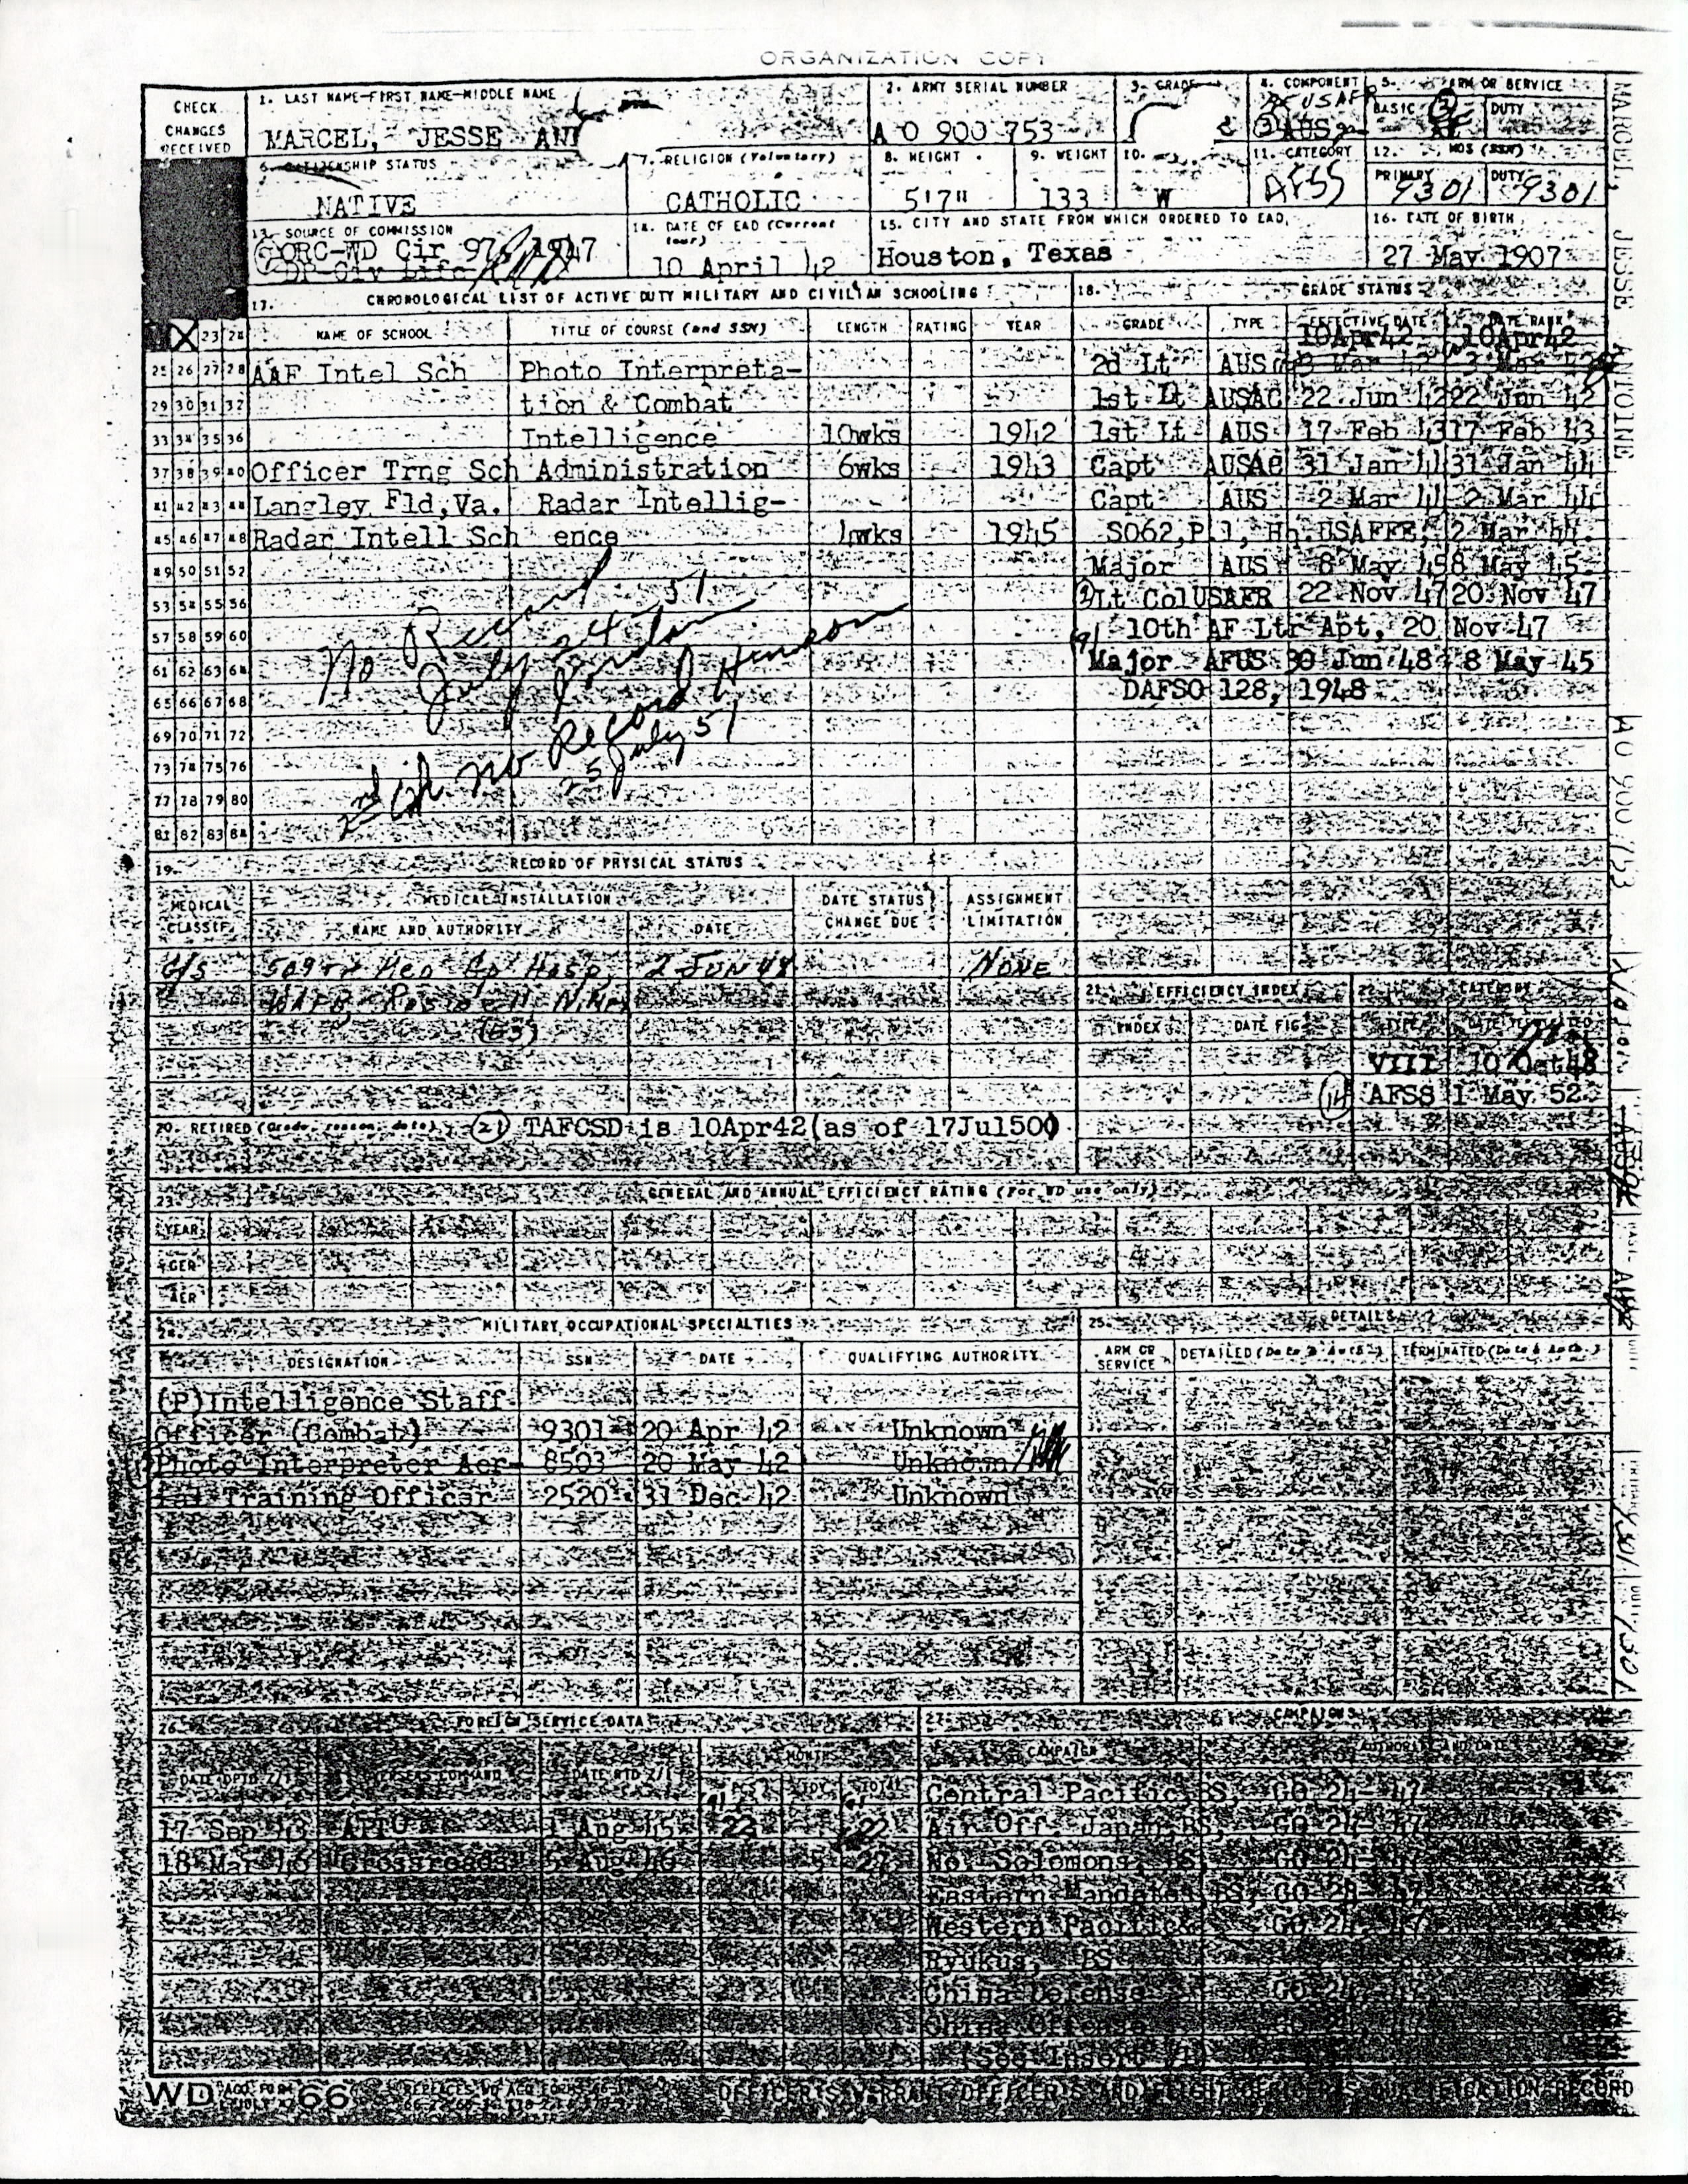 ORGANIZATION COPY
CHECK CHANGES RECEIVED
1. LAST NAME-FIRST NAME-MIDDLE NAME
MARCEL, JESSE
2. ARMY SERIAL NUMBER
A O 900 753
3. GRADE
4. COMPONENT
AUS
5. ARM OR SERVICE
BASIC DUTY
6. CITIZENSHIP STATUS
NATIVE
7. RELIGION (Voluntary)
CATHOLIC
8. HEIGHT
5'7"
9. WEIGHT
133
10.
W
11. CATEGORY
AFSS
12. MOS (SSN)
PRIMARY 9301 DUTY 9301
13. SOURCE OF COMMISSION
ORC-WD Cir 97, 1947
14. DATE OF EAD (Current tour)
10 April 42
15. CITY AND STATE FROM WHICH ORDERED TO EAD
Houston, Texas
16. DATE OF BIRTH
27 May 1907
17. CHRONOLOGICAL LIST OF ACTIVE DUTY MILITARY AND CIVILIAN SCHOOLING
NAME OF SCHOOL TITLE OF COURSE (and SSN) LENGTH RATING YEAR
AAF Intel Sch Photo Interpreta-
tion & Combat
Intelligence 10wks 1942
Officer Trng Sch Administration 6wks 1943
Langley Fld, Va. Radar Intellig-
Radar Intell Sch ence 4wks 1945
No Record
July 24 51
Jordan
2nd ch no Record Henson
25 July 51
18. GRADE STATUS
GRADE TYPE EFFECTIVE DATE DATE RANK
10Apr42 10Apr42
2d Lt AUS
1st Lt AUSAC 22 Jun 42 22 Jun 42
1st Lt AUS 17 Feb 43 17 Feb 43
Capt AUSAC 31 Jan 44 31 Jan 44
Capt AUS 2 Mar 44 2 Mar 44
SO62, P.1, Hq. USAFFE, 2 Mar 44.
Major AUS 8 May 45 8 May 45
Lt Col USAFR 22 Nov 47 20 Nov 47
10th AF Ltr Apt, 20 Nov 47
Major AFUS 30 Jun 48 8 May 45
DAFSO 128, 1948
19. RECORD OF PHYSICAL STATUS
MEDICAL CLASSIF.
MEDICAL INSTALLATION
NAME AND AUTHORITY DATE
DATE STATUS CHANGE DUE
ASSIGNMENT LIMITATION
G/S 509TH Med Gp Hosp, 2 JUN 48 NONE
WAFB, Roswell N.Mex
(63)
20. RETIRED (Grade, reason, date) (21) TAFCSD is 10Apr42 (as of 17Jul50)
21. EFFICIENCY INDEX
INDEX DATE FIG
22. CATEGORY
VIII 10 Oct 48
(14) AFSS 1 May 52
23. GENERAL AND ANNUAL EFFICIENCY RATING (For WD use only)
YEAR
GER
AER
24. MILITARY OCCUPATIONAL SPECIALTIES
DESIGNATION SSN DATE QUALIFYING AUTHORITY
(P) Intelligence Staff
Officer (Combat) 9301 20 Apr 42 Unknown
Photo Interpreter Aer- 8503 20 May 42 Unknown
ial Training Officer 2520 31 Dec 42 Unknown
25. DETAILS
ARM OR SERVICE DETAILED (Date & Auth.) TERMINATED (Date & Auth.)
26. FOREIGN SERVICE DATA
17 Sep 43 APTO 1 Aug 45 22 22
18 Mar 46 "Crossroads" 5 Aug 46 5 27
27. CAMPAIGNS
CAMPAIGN AUTHORITY AND DATE
Central Pacific, BS, GO 24- 47
Air Off. Japan, BS, GO 24- 47
No. Solomons, BS, GO 24- 47
Eastern Mandates, BS, GO 24- 47
Western Pacific GO 24, 47
Ryukus, BS
China Defense GO 24, 47
China Offense
(See Insert
WD AGO FORM 66
OFFICER'S, WARRANT OFFICER'S AND FLIGHT OFFICER'S QUALIFICATION RECORD
MARCEL, JESSE ANTOINE
AO 900 753